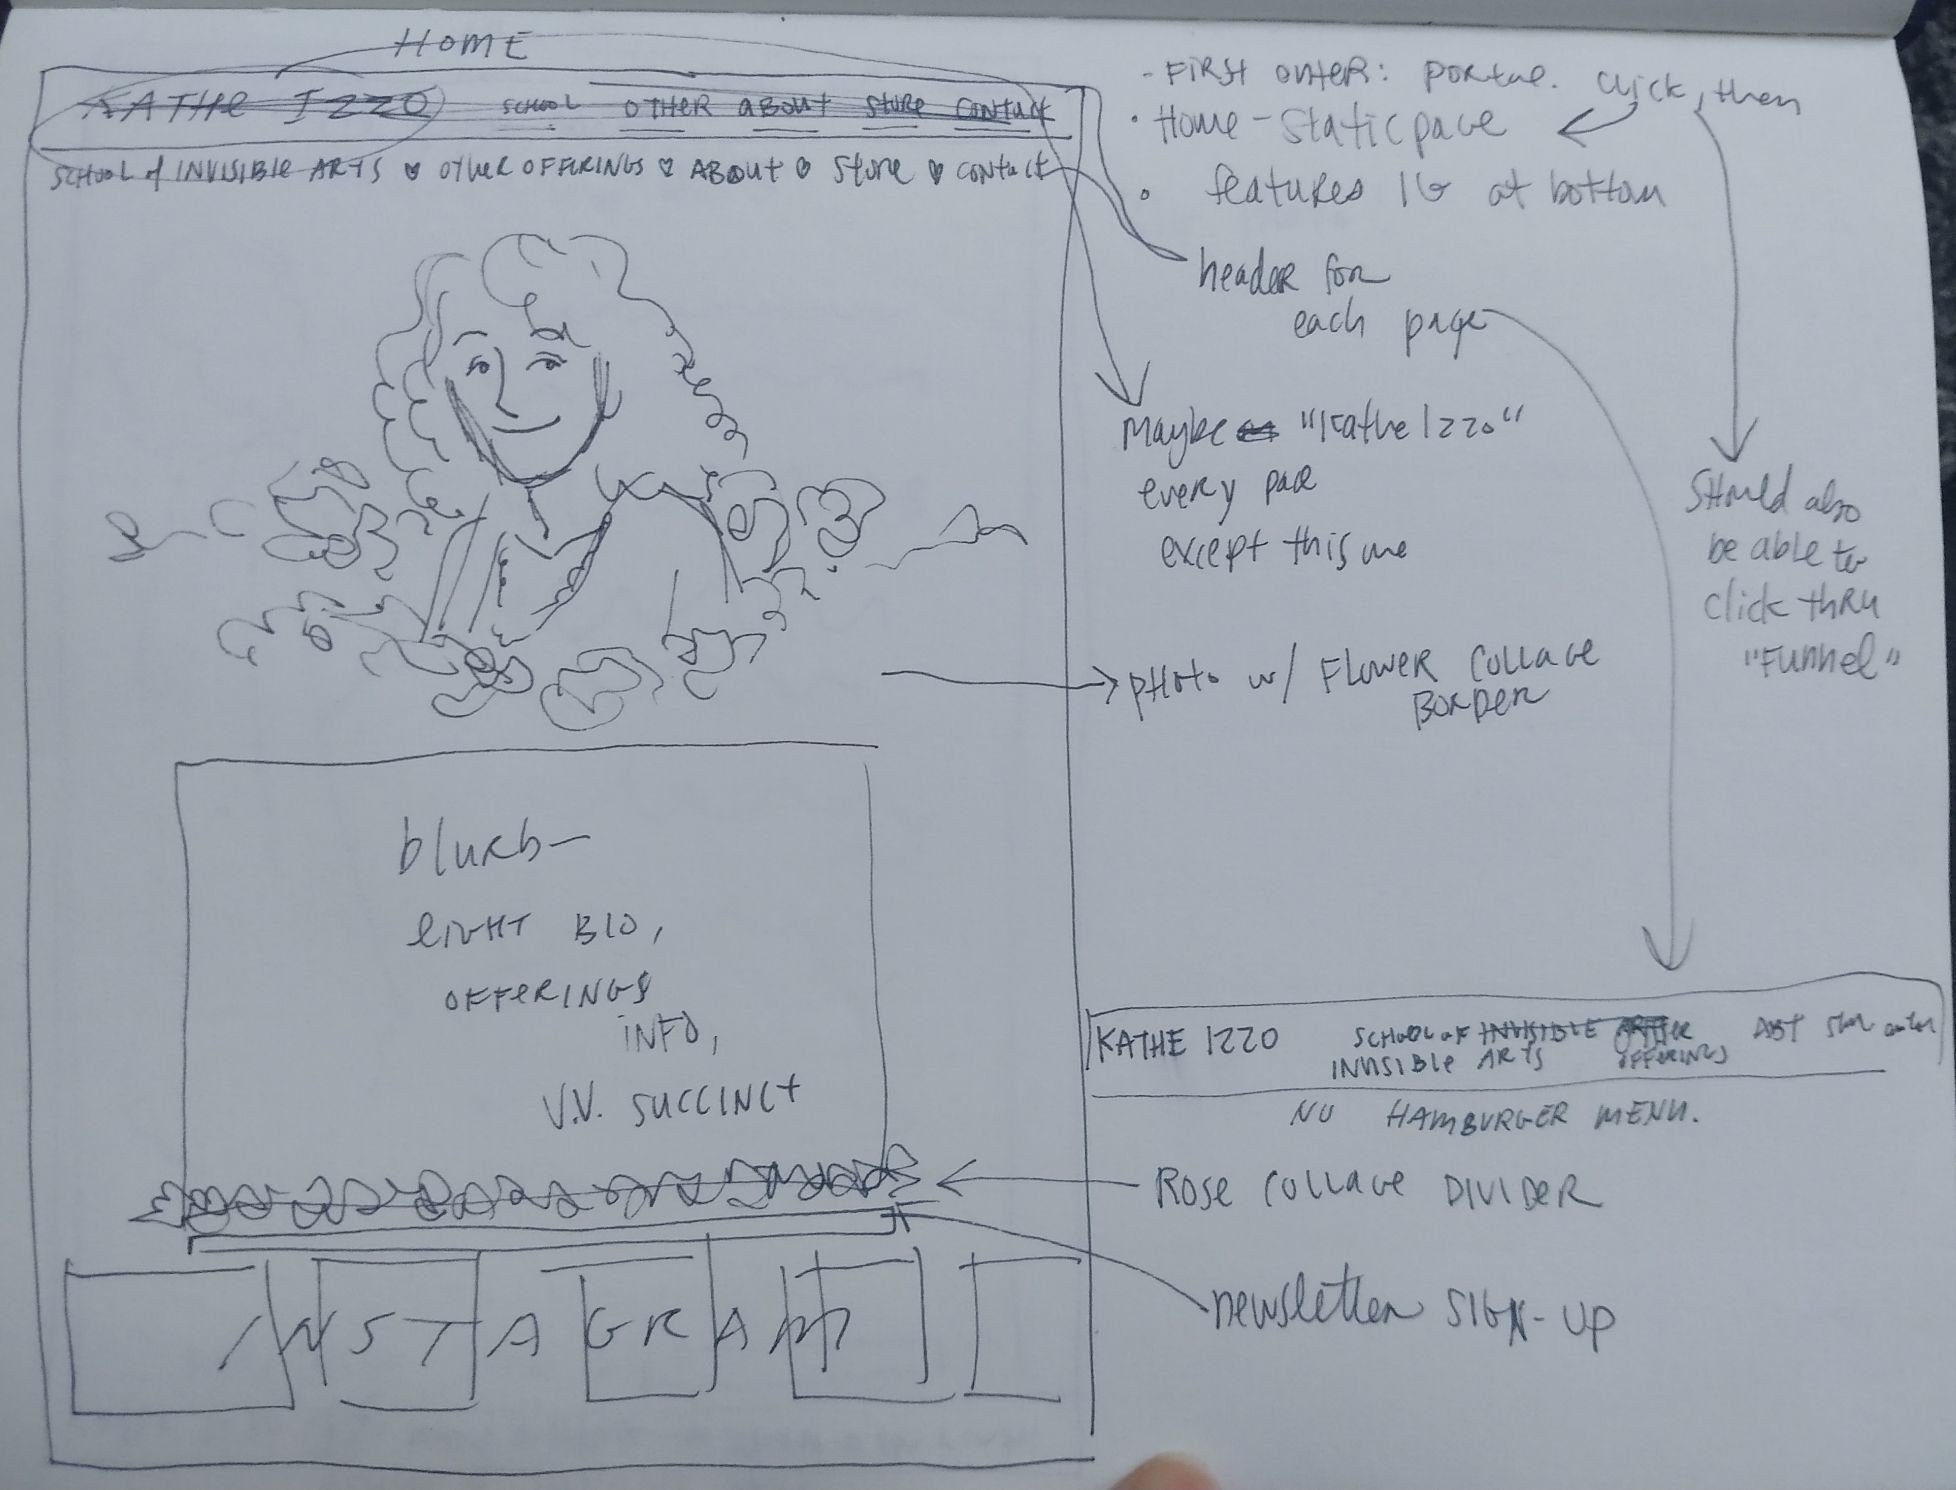 HOME
KATHE IZZO SCHOOL OTHER ABOUT STORE CONTACT
SCHOOL of INVISIBLE ARTS ♥ OTHER OFFERINGS ♥ ABOUT ♥ Store ♥ CONtact
- FIRST ENTER: PORTAL. Click, then
• Home - Static page
• features IG at bottom
header for
each page
Maybe "Kathe Izzo"
every page
except this one
Should also
be able to
click thru
"Funnel"
PHOTO w/ FLOWER COLLAGE
BORDER
blurb-
LIGHT BIO,
OFFERINGS
INFO,
V.V. SUCCINCT
KATHE IZZO SCHOOL OF INVISIBLE OTHER ABT Stor
INVISIBLE ARTS OFFERINGS
NO HAMBURGER MENU.
ROSE COLLAGE DIVIDER
newsletter SIGN-UP
INSTAGRAM